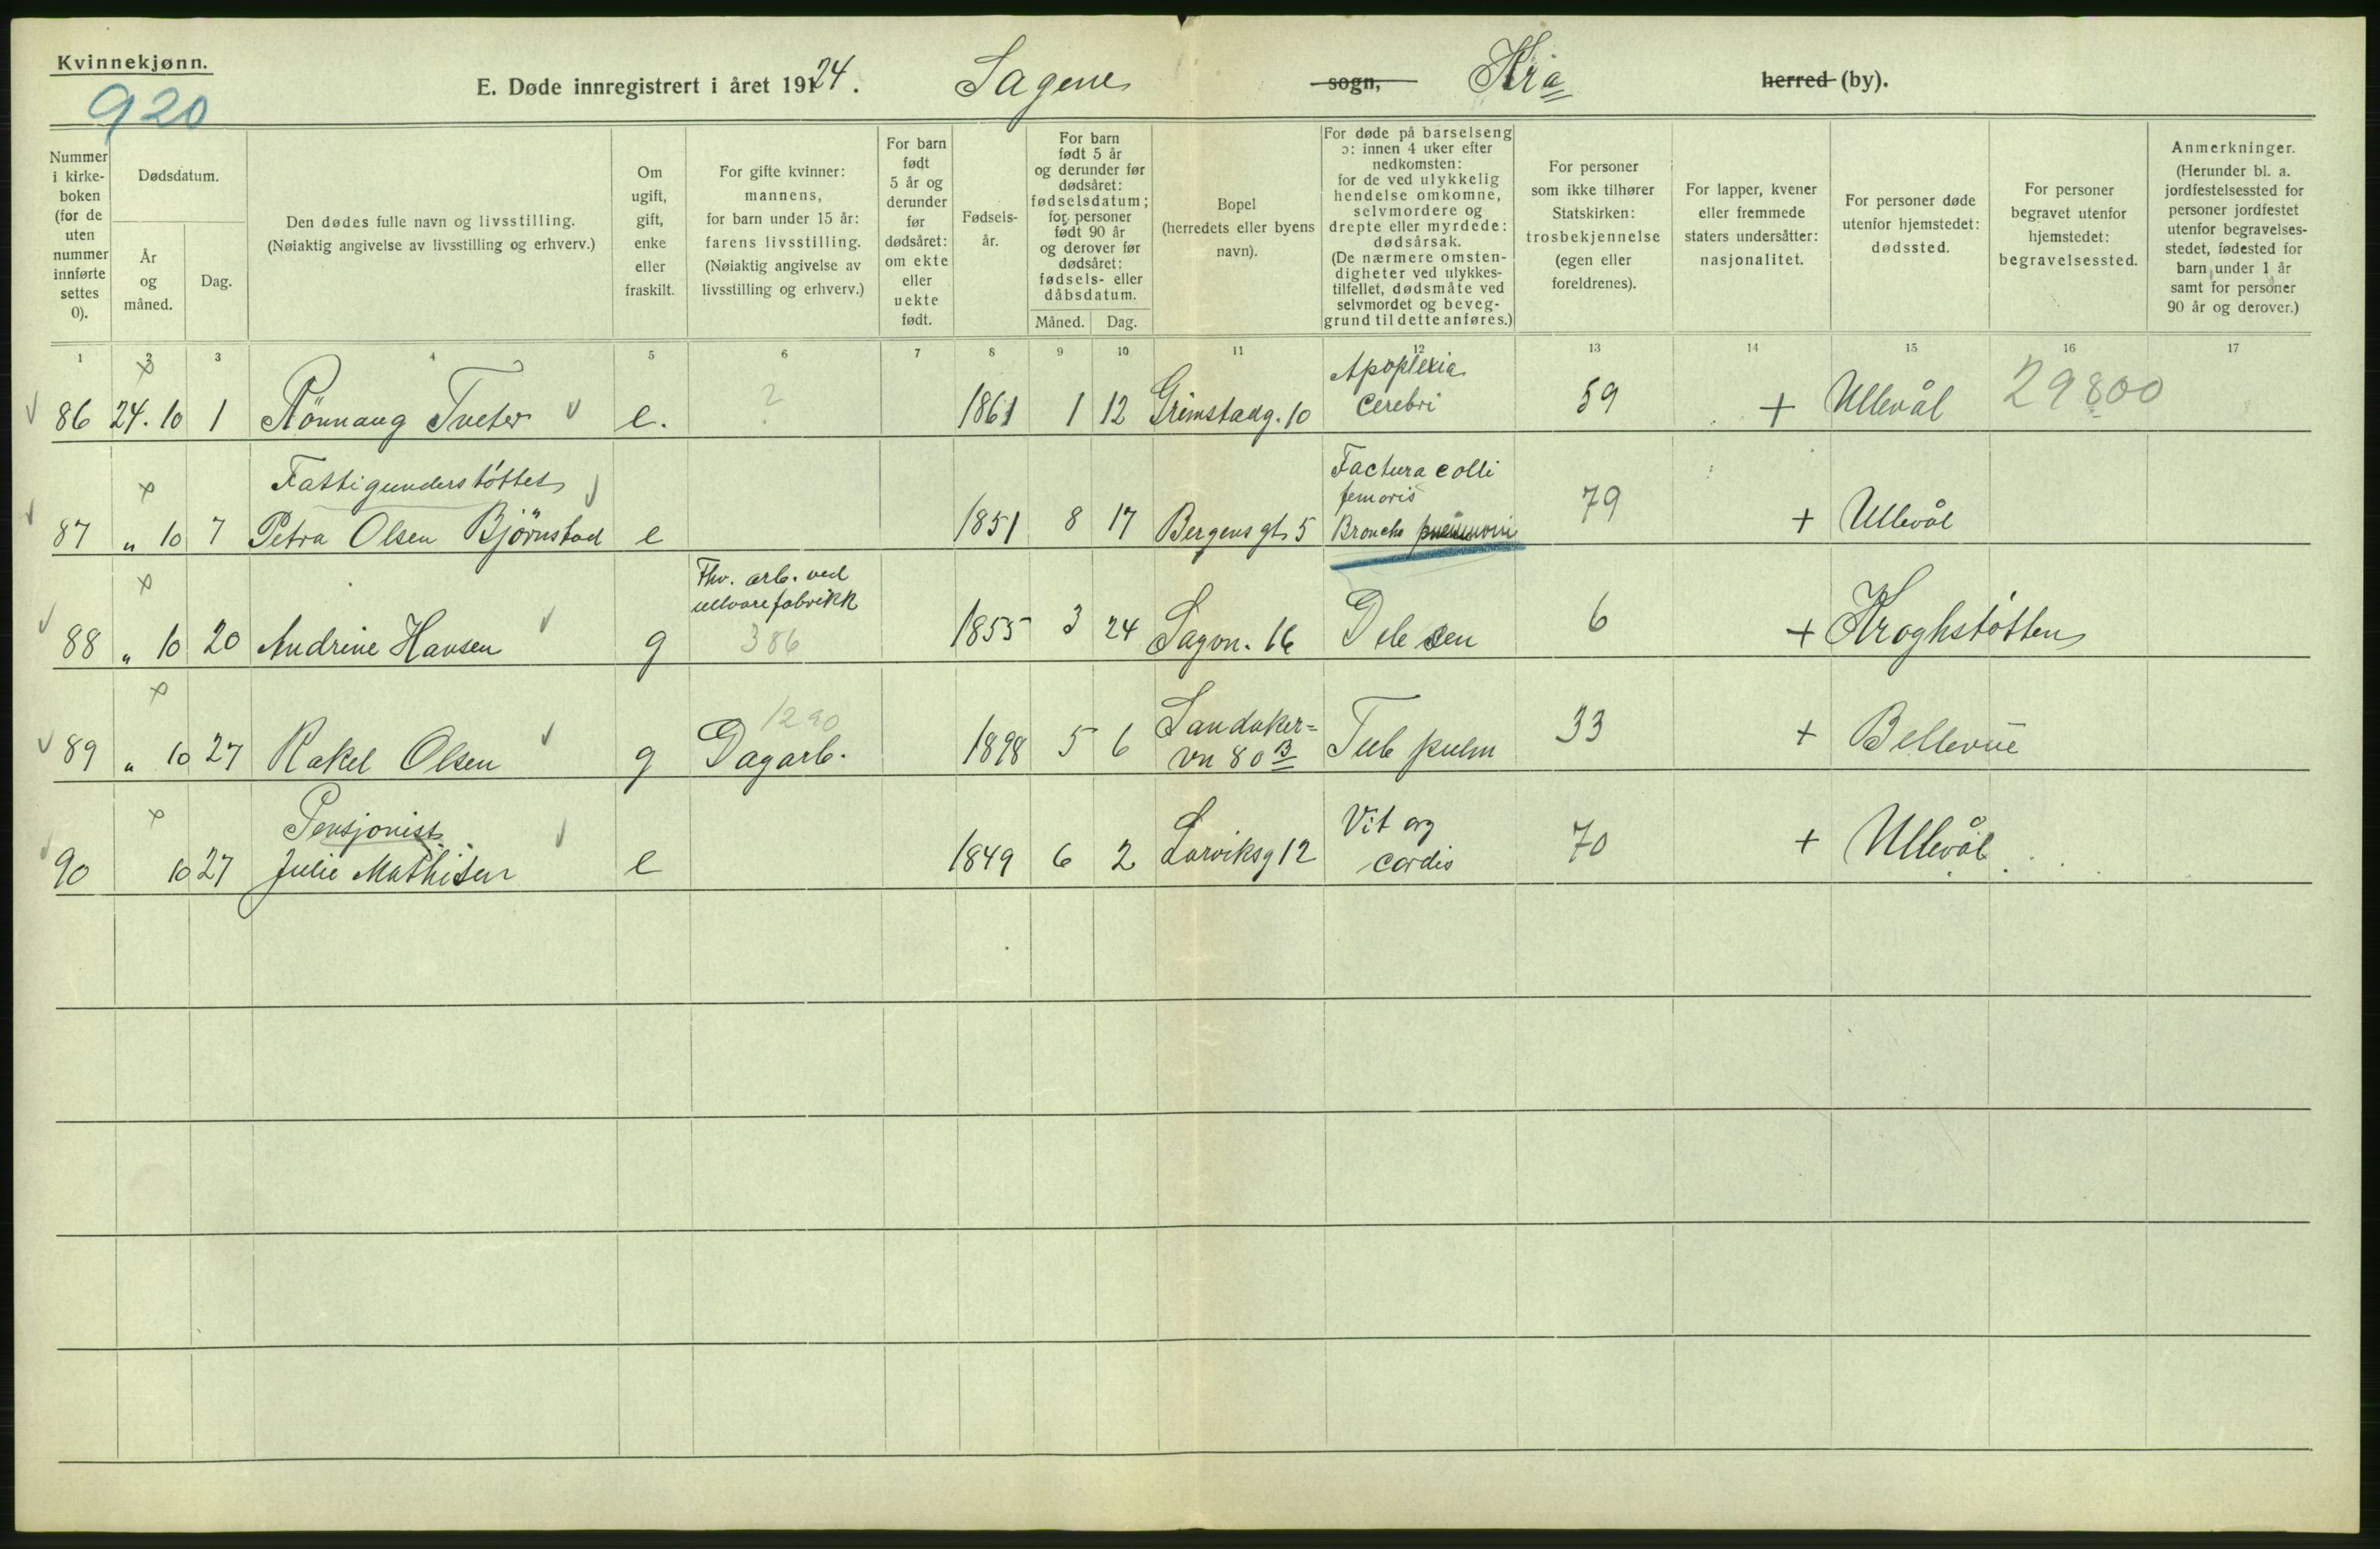 Kvinnekjønn.
920
E. Døde innregistrert i året 1924. Sagene sogn, Kra herred (by).
Nummer i kirke- boken (for de uten nummer innførte settes 0).
Dødsdatum.
År og måned.
Dag.
Den dødes fulle navn og livsstilling.
(Nøiaktig angivelse av livsstilling og erhverv.)
Om ugift, gift, enke eller fraskilt.
For gifte kvinner: mannens, for barn under 15 år: farens livsstilling. (Nøiaktig angivelse av livsstilling og erhverv.)
For barn født 5 år og derunder før dødsåret: om ekte eller uekte født.
Fødsels- år.
For barn født 5 år og derunder før dødsåret: fødselsdatum; for personer født 90 år og derover før dødsåret: fødsels- eller dåbsdatum.
Måned. Dag.
Bopel (herredets eller byens navn).
For døde på barselseng ɔ: innen 4 uker efter nedkomsten: for de ved ulykkelig hendelse omkomne, selvmordere og drepte eller myrdede: dødsårsak. (De nærmere omsten- digheter ved ulykkes- tilfellet, dødsmåte ved selvmordet og beveg- grund til dette anføres.)
For personer som ikke tilhører Statskirken: trosbekjennelse (egen eller foreldrenes).
For lapper, kvener eller fremmede staters undersåtter: nasjonalitet.
For personer døde utenfor hjemstedet: dødssted.
For personer begravet utenfor hjemstedet: begravelsessted.
Anmerkninger. (Herunder bl. a. jordfestelsessted for personer jordfestet utenfor begravelses- stedet, fødested for barn under 1 år samt for personer 90 år og derover.)
1 2 3 4 5 6 7 8 9 10 11 12 13 14 15 16 17
86 24. 10 1 Rönnaug Tveter e. ? 1861 1 12 Grimstadg. 10 Apoplexia cerebri 59 + Ullevål 29800
Fattigunderstøttet
87 " 10 7 Petra Olsen Björnstad e 1851 8 17 Bergensgt 5 Factura colli femoris Broncho pneumoni 79 + Ullevål
88 " 10 20 Andrine Hansen g Fhv. arb. ved ullvarefabrikk 386 1855 3 24 Sagvn. 16 Deb sen 6 + Kroghstøtten
89 " 10 27 Rakel Olsen g 1290 Dagarb. 1898 5 6 Sandaker= vn 80 B Tub pulm 33 + Bellevue
Pensjonist
90 10 27 Julie Mathisen e 1849 6 2 Larviksg 12 Vit org cordis 70 + Ullevål